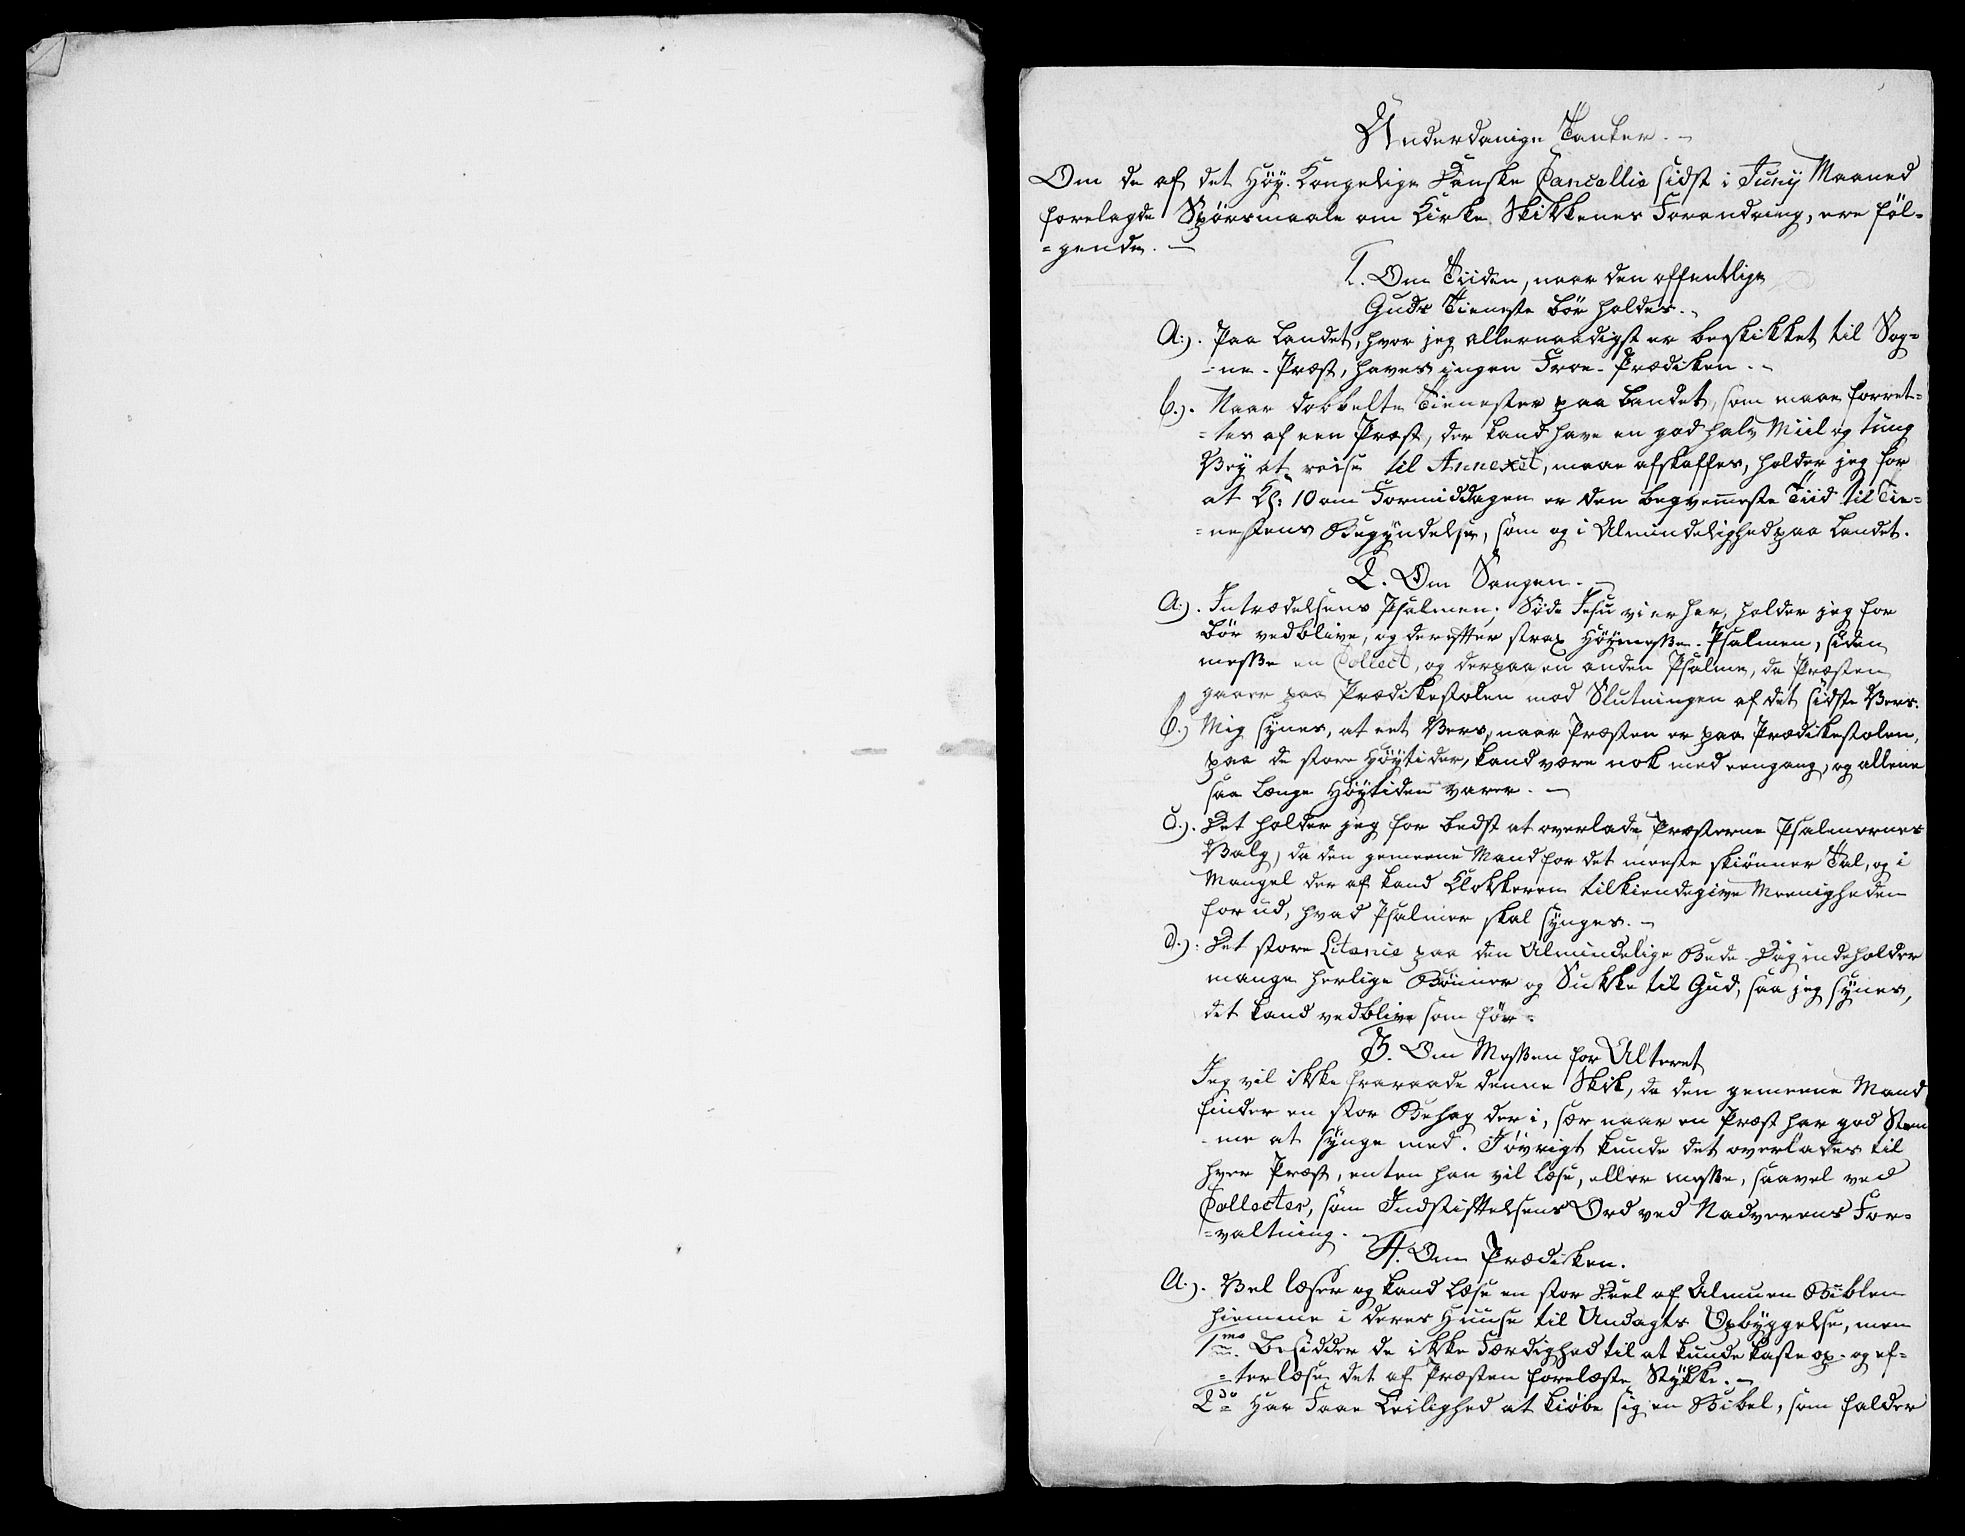 Underdanige Tanker. -
Om de af det Høy. Kongelige Danske Cancellie sidst i Junij Maaned
forelagde Spørsmaale om Kirke Skikkenes Forandring, ere føl-
-gende. -
1. Om Tiiden, naar den offentlige
Guds Tieneste bør holdes. -
A.). Paa Landet, hvor jeg allernaadigst er beskikket til Sog-
-ne-Præst, haves ingen Froe-Prædiken. -
b.). Naar dobbelte Tienester paa Landet, som maae forret-
-tes af een Præst, der kand have en god halv Miil og tung
Vey at reise til Annexet, maae afskaffes, holder jeg for
at Kl: 10 om Formiddagen er den beqvemmeste Tiid til Tie-
-nestens Begyndelse, som og i Almindelighed paa Landet.
2. Om Sangen. -
A.). Intrædelsens Psalmen; Søde Jesu vi er her, holder jeg for
bør vedblive, og derefter strax Høymesse-Psalmen, siden
messe en Collect, og derpaa en anden Psalme, da Præsten
gaaer paa Prædikestolen mod Slutningen af det sidste Vers.
b.) Mig synes, at eet Vers, naar Præsten er paa Prædikestolen,
paa de store Høytider, kand være nok med eengang, og allene
saa længe Høytiden varer. -
c.). Det holder jeg for bedst at overlade Præsterne Psalmernes
Valg, da den gemeene Mand for det meeste skiønner Tal, og i
Mangel der af kand Klokkeren tilkiendegive Meenigheden
for ud, hvad Psalmer skal synges. -
d.). Det store Litanie paa den Almindelige Bede-Dag indeholder
mange herlige Bønner og Sukke til Gud, saa jeg synes,
det kand vedblive som før.
3. Om Messen for Alteret
Jeg vil ikke fraraade denne Skik, da den gemeene Mand
finder en stor Behag der i, sær naar en Præst har god Stem
-me at synge med. Iøvrigt kunde det overlades til
hver Præst, enten han vil læse, eller messe, saavel ved
Collecter, som Indstiftelsens Ord ved Nadverens For-
-valtning. -
4. Om Prædiken.
A.). Vel læser og kand læse en stor Deel af Almuen Biblen
hiemme i deres Huuse til Andagts Opbyggelse, men
1mo. Besidder de ikke Færdighed til at kunde kaste op- og ef-
-terlæse det af Præsten forelæste Stykke. -
2do Har Faae Leilighed at kiøbe sig en Bibel, som falder